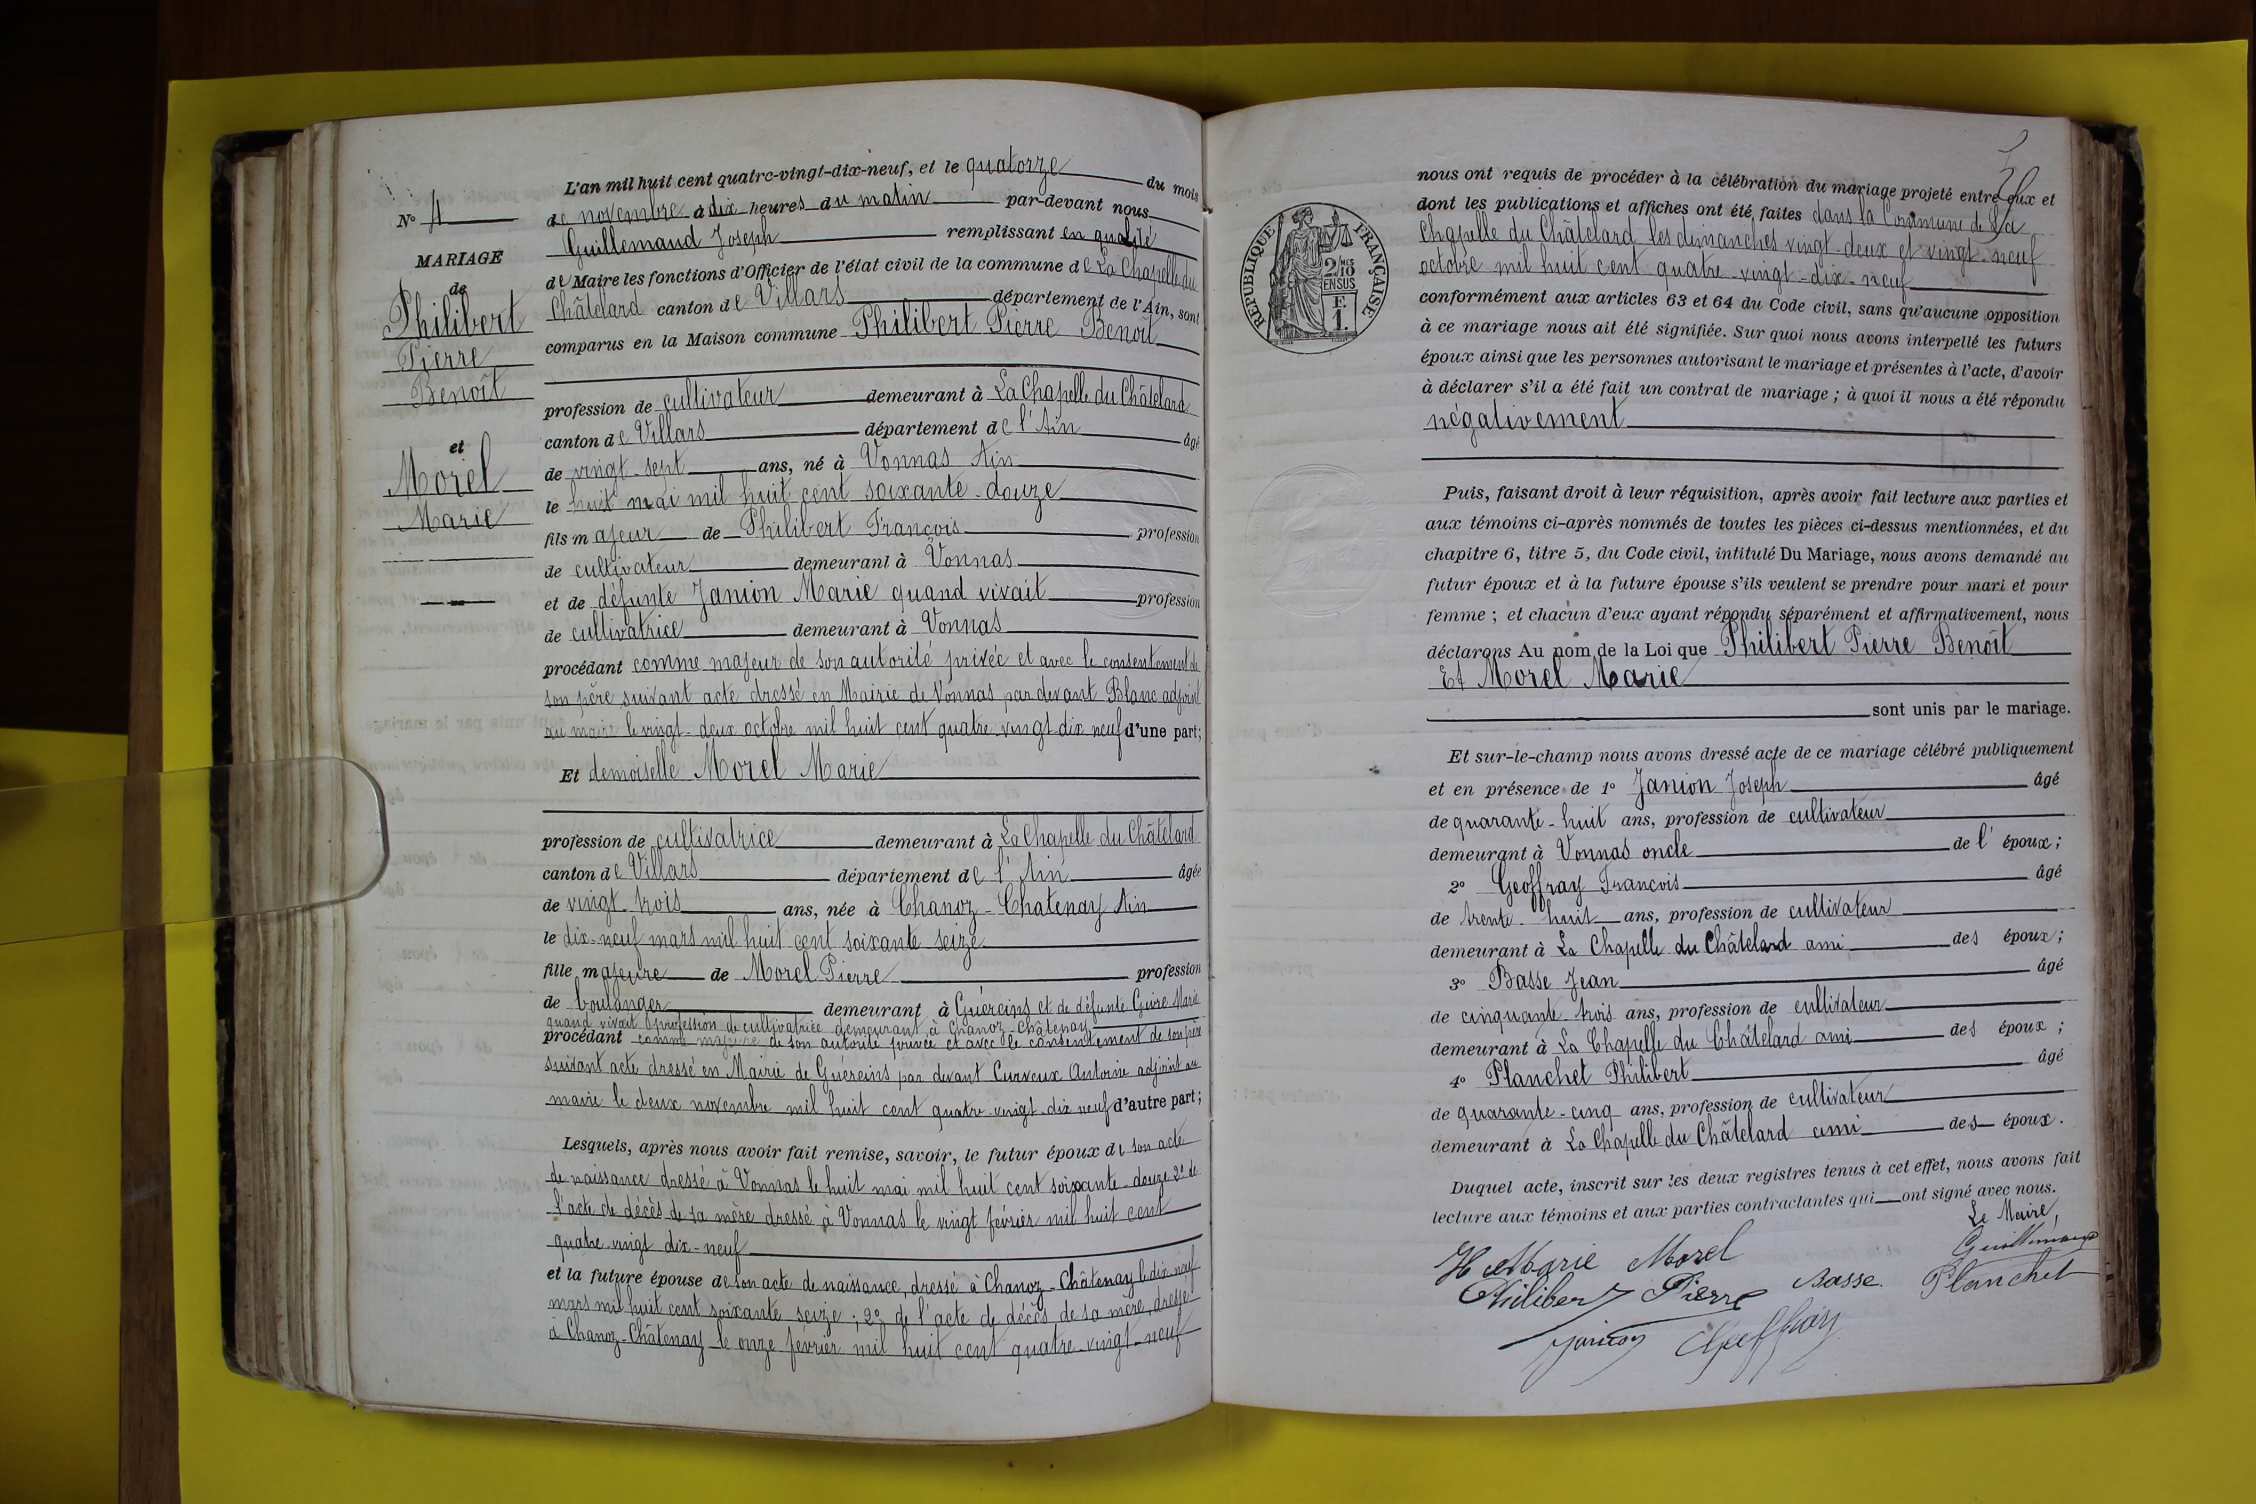 N° 4
MARIAGE
de
Philibert
Pierre
Benoît
et
Morel
Marie
L'an mil huit cent quatre-vingt-dix-neuf, et le quatorze du mois
de novembre à dix heures du matin par-devant nous
Guillemaud Joseph remplissant en qualité
de Maire les fonctions d'Officier de l'état civil de la commune de La Chapelle du
Châtelard canton de Villars département de l'Ain, sont
comparus en la Maison commune Philibert Pierre Benoit
profession de cultivateur demeurant à La Chapelle du Châtelard
canton de Villars département de l'Ain âgé
de vingt-sept ans, né à Vonnas Ain
le huit mai mil huit cent soixante-douze
fils majeur de Philibert François profession
de cultivateur demeurant à Vonnas
et de défunte Janion Marie quand vivait profession
de cultivatrice demeurant à Vonnas
procédant comme majeur de son autorité privée et avec le consentement de
son père suivant acte dressé en Mairie de Vonnas par devant Blanc adjoint
au maire le vingt-deux octobre mil huit cent quatre-vingt dix neuf d'une part;
Et demoiselle Morel Marie
profession de cultivatrice demeurant à La Chapelle du Châtelard
canton de Villars département de l'Ain âgée
de vingt-trois ans, née à Chanoz-Chatenay Ain
le dix-neuf mars mil huit cent soixante seize
fille majeure de Morel Pierre profession
de boulanger demeurant à Guéreins et de défunte Guire Marie
quand vivait profession de cultivatrice demeurant à Chanoz-Châtenay
procédant comme majeure de son autorité privée et avec le consentement de son père
suivant acte dressé en Mairie de Guéreins par devant Curveux Antoine adjoint au
maire le deux novembre mil huit cent quatre-vingt-dix neuf d'autre part;
Lesquels, après nous avoir fait remise, savoir, le futur époux de son acte
de naissance dressé à Vonnas le huit mai mil huit cent soixante-douze 2° de
l'acte de décès de sa mère dressé à Vonnas le vingt février mil huit cent
quatre-vingt dix-neuf
et la future épouse de son acte de naissance, dressé à Chanoz-Châtenay le dix-neuf
mars mil huit cent soixante seize; 2° de l'acte de décès de sa mère, dressé
à Chanoz-Châtenay le onze février mil huit cent quatre-vingt-neuf
RÉPUBLIQUE FRANÇAISE
2/10
EN SUS
E
1.
nous ont requis de procéder à la célébration du mariage projeté entre eux et
dont les publications et affiches ont été faites dans la Commune de La
Chapelle du Châtelard les dimanches vingt-deux et vingt-neuf
octobre mil huit cent quatre-vingt-dix-neuf
conformément aux articles 63 et 64 du Code civil, sans qu'aucune opposition
à ce mariage nous ait été signifiée. Sur quoi nous avons interpellé les futurs
époux ainsi que les personnes autorisant le mariage et présentes à l'acte, d'avoir
à déclarer s'il a été fait un contrat de mariage; à quoi il nous a été répondu
négativement
Puis, faisant droit à leur réquisition, après avoir fait lecture aux parties et
aux témoins ci-après nommés de toutes les pièces ci-dessus mentionnées, et du
chapitre 6, titre 5, du Code civil, intitulé Du Mariage, nous avons demandé au
futur époux et à la future épouse s'ils veulent se prendre pour mari et pour
femme; et chacun d'eux ayant répondu séparément et affirmativement, nous
déclarons Au nom de la Loi que Philibert Pierre Benoît
Et Morel Marie
sont unis par le mariage.
Et sur-le-champ nous avons dressé acte de ce mariage célébré publiquement
et en présence de 1° Janion Joseph âgé
de quarante-huit ans, profession de cultivateur
demeurant à Vonnas oncle de l'époux;
2° Geoffray François âgé
de trente-huit ans, profession de cultivateur
demeurant à La Chapelle du Châtelard ami des époux;
3° Basse Jean âgé
de cinquante-trois ans, profession de cultivateur
demeurant à La Chapelle du Châtelard ami des époux;
4° Planchet Philibert âgé
de quarante-cinq ans, profession de cultivateur
demeurant à La Chapelle du Châtelard ami des époux.
Duquel acte, inscrit sur les deux registres tenus à cet effet, nous avons fait
lecture aux témoins et aux parties contractantes qui ont signé avec nous.
Le Maire,
Marie Morel Guillemaud
Philibert Pierre Basse Planchet
Janion Geoffray